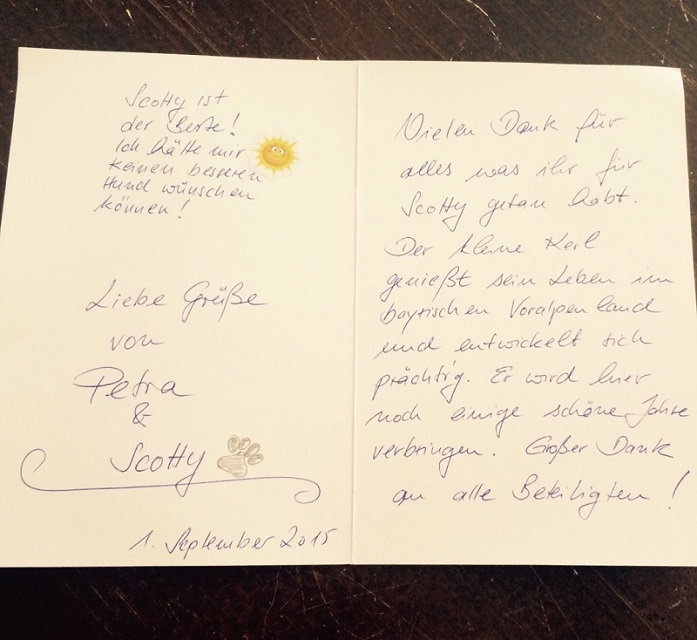 Scotty ist
der Beste!
Ich hätte mir
keinen besseren
Hund wünschen
können!
Liebe Grüße
von
Petra
&
Scotty
1. September 2015
Vielen Dank für
alles was ihr für
Scotty getan habt.
Der kleine Kerl
genießt sein Leben im
bayrischen Voralpenland
und entwickelt sich
prächtig. Er wird hier
noch einige schöne Jahre
verbringen. Großer Dank
an alle Beteiligten!